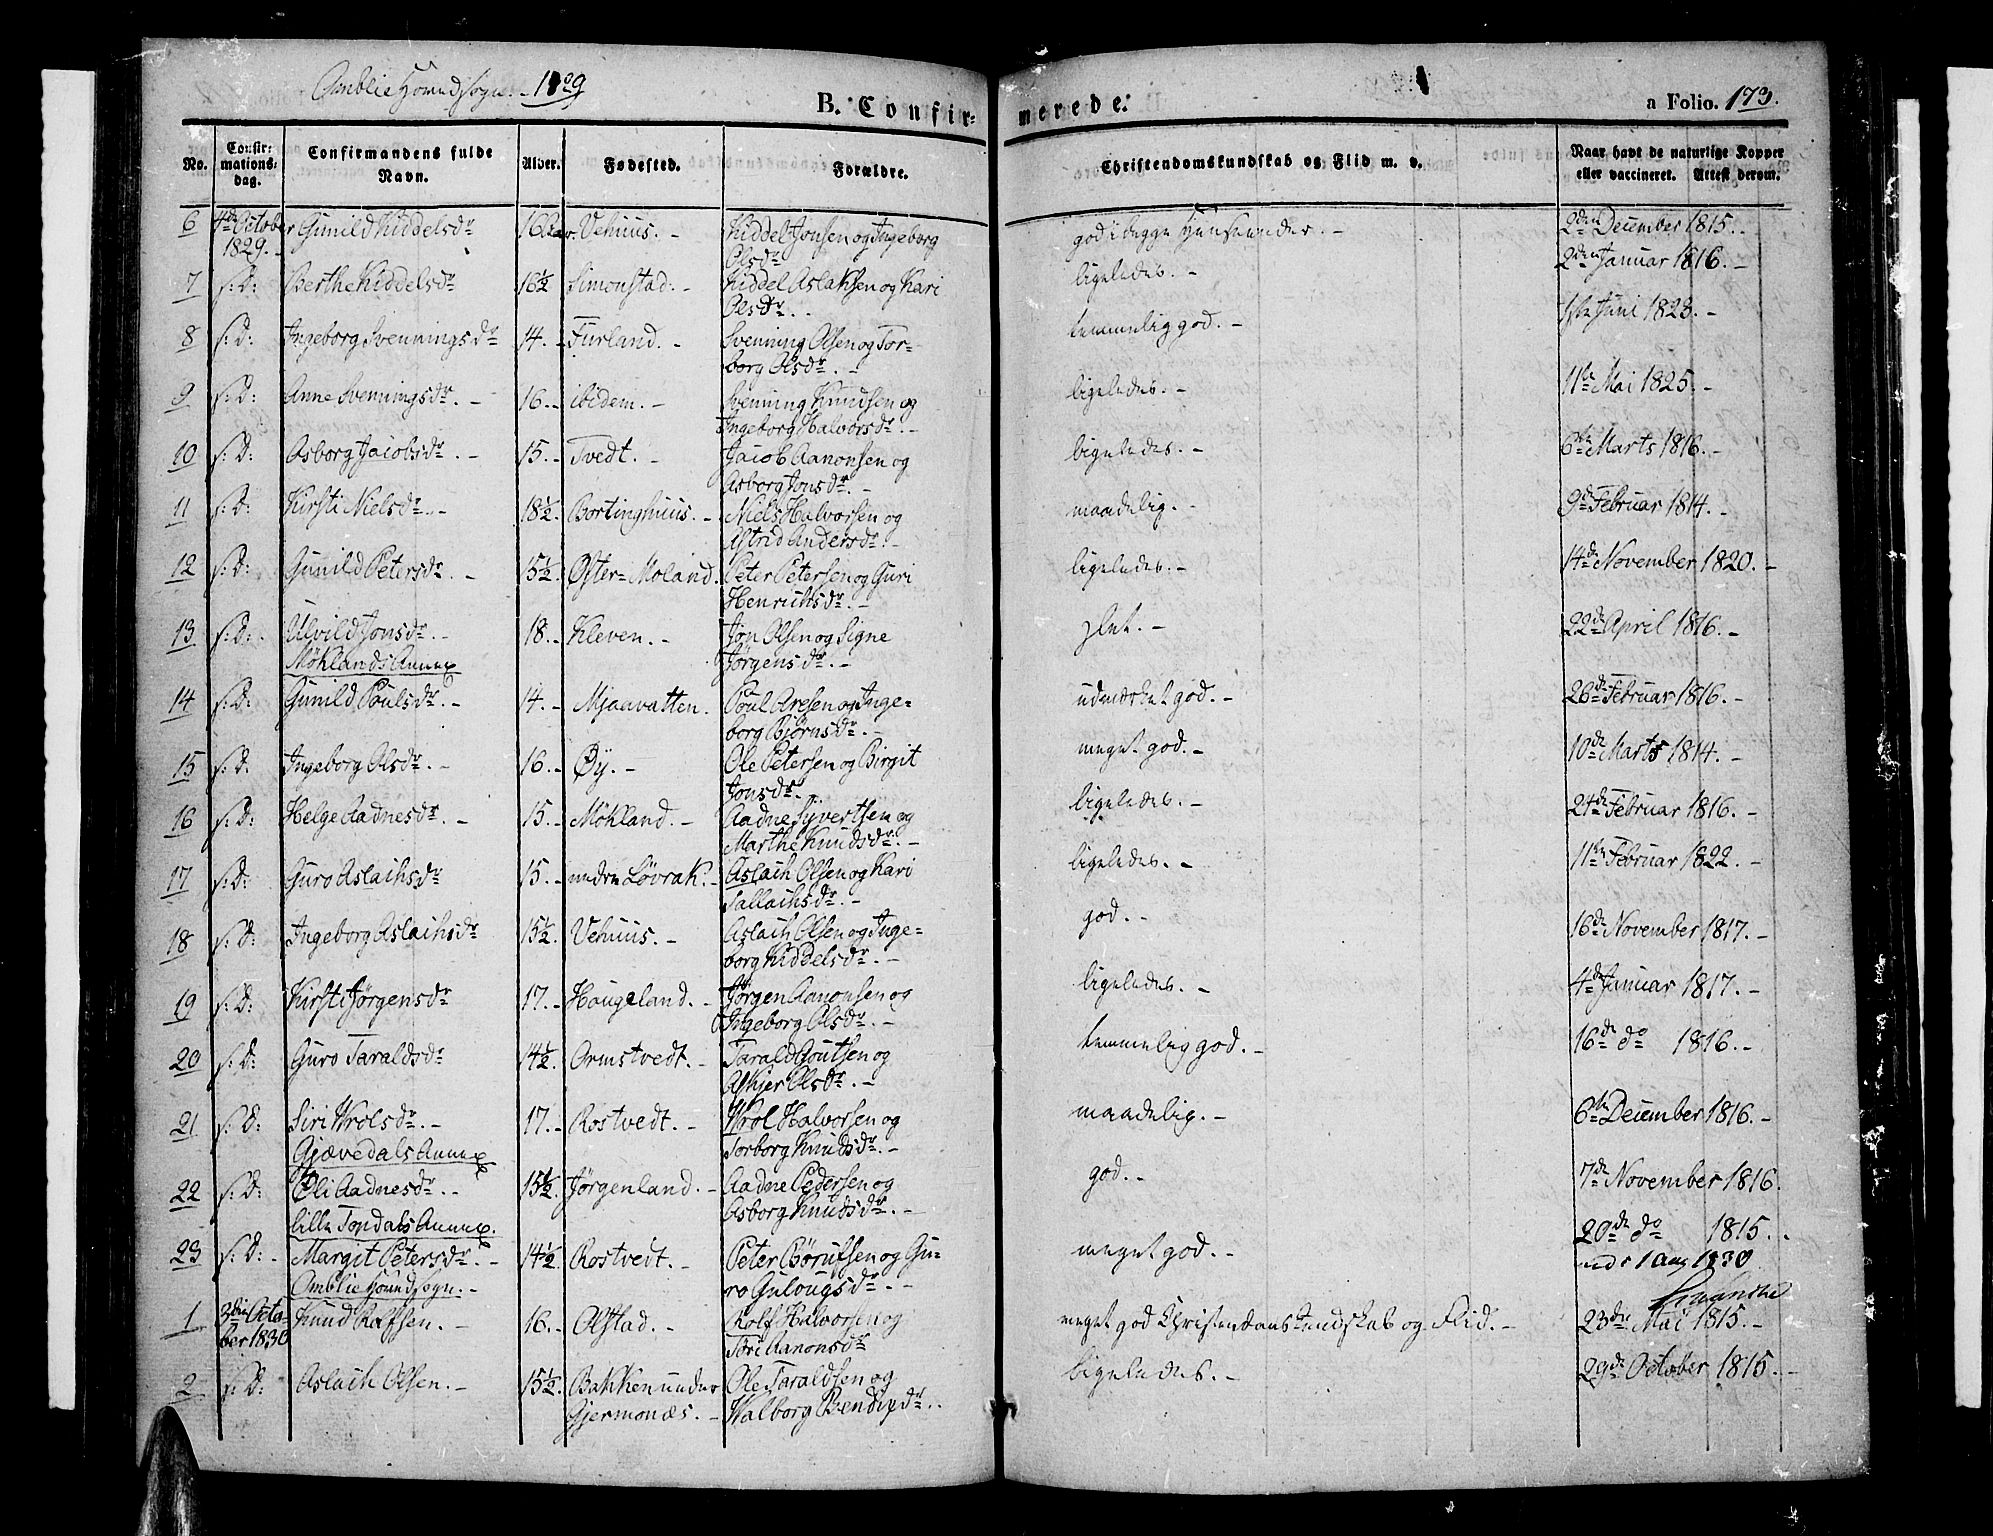 Amblie Hovedsogn. 1829
B. Confirmerede.
a Folio. 173.
No. Confirmationsdag. Confirmandens fulde Navn. Alder. Fødested. Forældre. Christendomskundskab og Flid m. v. Naar havt de naturlige Kopper eller vaccineret. Attest derom.
6 4de October 1829. Gunild Kiddelsdr 16 Vehuus. Kiddel Jonsen og Ingeborg Olsdr god i begge Henseender. 2den December 1815.
7 s: D: Berthe Kiddelsdr 16½ Simonstad. Kiddel Aslaksen og Kari Olsdr. ligeledes. 2den Januar 1816.
8 s: D: Ingeborg Svenningsdr 14. Furland. Svenning Olsen og Torborg Olsdr. temmelig god. 1ste Juni 1823.
9 s: D: Anne Svenningsdr. 16. ibidem. Svenning Knudsen og Ingeborg Halvorsdr. ligeledes. 11te Mai 1825.
10 s: D: Asborg Jacobsdr. 15. Tvedt. Jacob Aanonsen og Asborg Jonsdr. ligeledes. 6te Marts 1816.
11 s: D: Kirsti Nielsdr. 18½. Bortinghuus. Niels Halvorsen og Astrid Andersdr. maadelig. 9de Februar 1814.
12 s: D: Gunild Petersdr. 15½. Øster-Moland. Peter Petersen og Guri Henrichsdr. ligeledes. 14de November 1820.
13 s: D: Ulvild Jonsdr. 18. Kleven. Jon Olsen og Signe Jørgensdr. slet. 22de April 1816.
Møklands Annex
14 s: D: Gunild Poulsdr. 14. Mjaavatten. Poul Aresen og Ingeborg Bjørnsdr. udmærket god. 26de Februar 1816.
15 s: D. Ingeborg Olsdr. 16. Øy. Ole Petersen og Birgit Jonsdr. meget god. 10de Marts 1814.
16 s: D: Helge Aadnesdr. 15. Møkland. Aadne Syvertsen og Marthe Knudsdr. ligeledes. 24de Februar 1816.
17 s: D: Guro Aslachsdr 15. nedre Løvrak. Aslach Olsen og Kari Tallachsdr. ligeledes. 11te Februar 1822.
18 s: D: Ingeborg Aslachsdr 15½. Vehuus. Aslach Olsen og Ingeborg Kiddelsdr. god. 16de November 1817.
19 s: D: Kirsti Jørgensdr 17. Haugeland. Jørgen Aanonsen og Ingeborg Olsdr. ligeledes. 4de Januar 1817.
20 s: D: Guro Taraldsdr 14½. Ormstvedt. Tarald Goutsen og Askjer Olsdr. temmelig god. 16de do 1816.
21 s: D: Siri Wrolsdr. 17. Rostvedt. Wrol Halvorsen og Torborg Knudsdr. maadelig. 6te December 1816.
Gjævedals Annex
22 s: D: Oli Aadnesdr. 15½. Jørgenland. Aadne Pedersen og Asborg Knudsdr. god. 7de November 1816.
lille Topdals Annex.
23 s: D: Margit Petersdr. 14½. Rostvedt. Peter Børufsen og Guro Gulougsdr. meget god. 20de do 1815.
1 Aug 1830
Amblie Hovedsogn.
1 3die October 1830 Knud Rolfsen. 16. Olstad. Rolf Halvorsen og Tori Aanonsdr meget god Christendomskundskab og Flid. 23de Mai 1815.
2 s: D: Aslach Olsen. 15½. Bakken under Gjermonæs. Ole Taraldsen og Walborg Bendixdr. ligeledes. 29de October 1815.